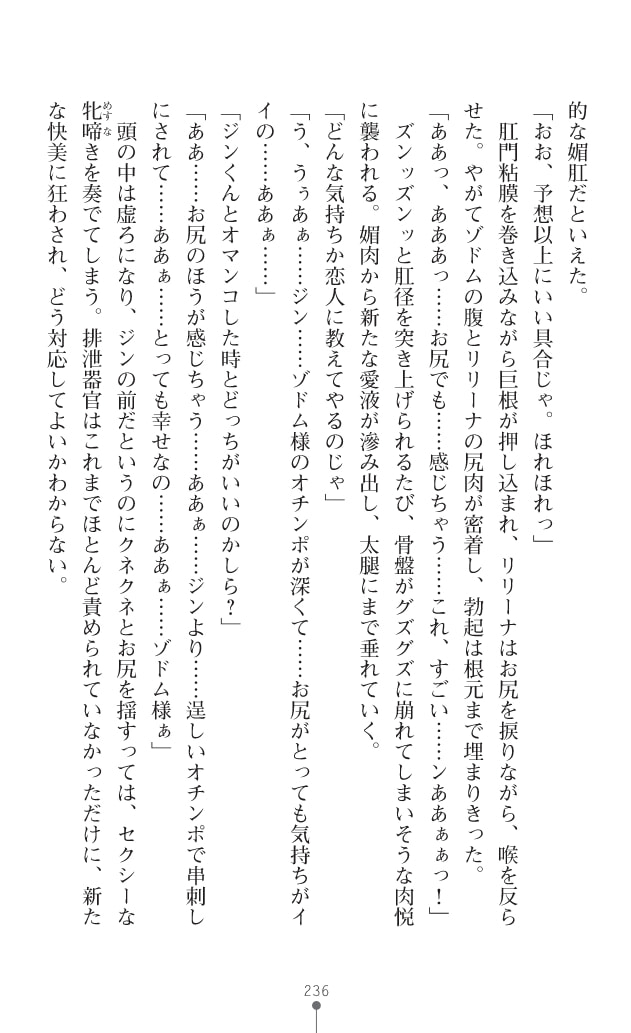 的な媚肛だといえた。
「おお、予想以上にいい具合じゃ。ほれほれっ」
肛門粘膜を巻き込みながら巨根が押し込まれ、リリーナはお尻を捩りながら、喉を反ら
せた。やがてゾドムの腹とリリーナの尻肉が密着し、勃起は根元まで埋まりきった。
「ああっ、あああっ……お尻でも……感じちゃう……これ、すごい……ンああぁぁっ！」
ズンッズンッと肛径を突き上げられるたび、骨盤がグズグズに崩れてしまいそうな肉悦
に襲われる。媚肉から新たな愛液が滲み出し、太腿にまで垂れていく。
「どんな気持ちか恋人に教えてやるのじゃ」
「う、うぅあぁ……ジン……ゾドム様のオチンポが深くて……お尻がとっても気持ちがイ
イの……ああぁ……」
「ジンくんとオマンコした時とどっちがいいのかしら？」
「ああ……お尻のほうが感じちゃう……ああぁ……ジンより……逞しいオチンポで串刺し
にされて……ああぁ……とっても幸せなの……ああぁ……ゾドム様ぁ」
頭の中は虚ろになり、ジンの前だというのにクネクネとお尻を揺すっては、セクシーな
牝啼きを奏でてしまう。排泄器官はこれまでほとんど責められていなかっただけに、新た
めすな
な快美に狂わされ、どう対応してよいかわからない。
236